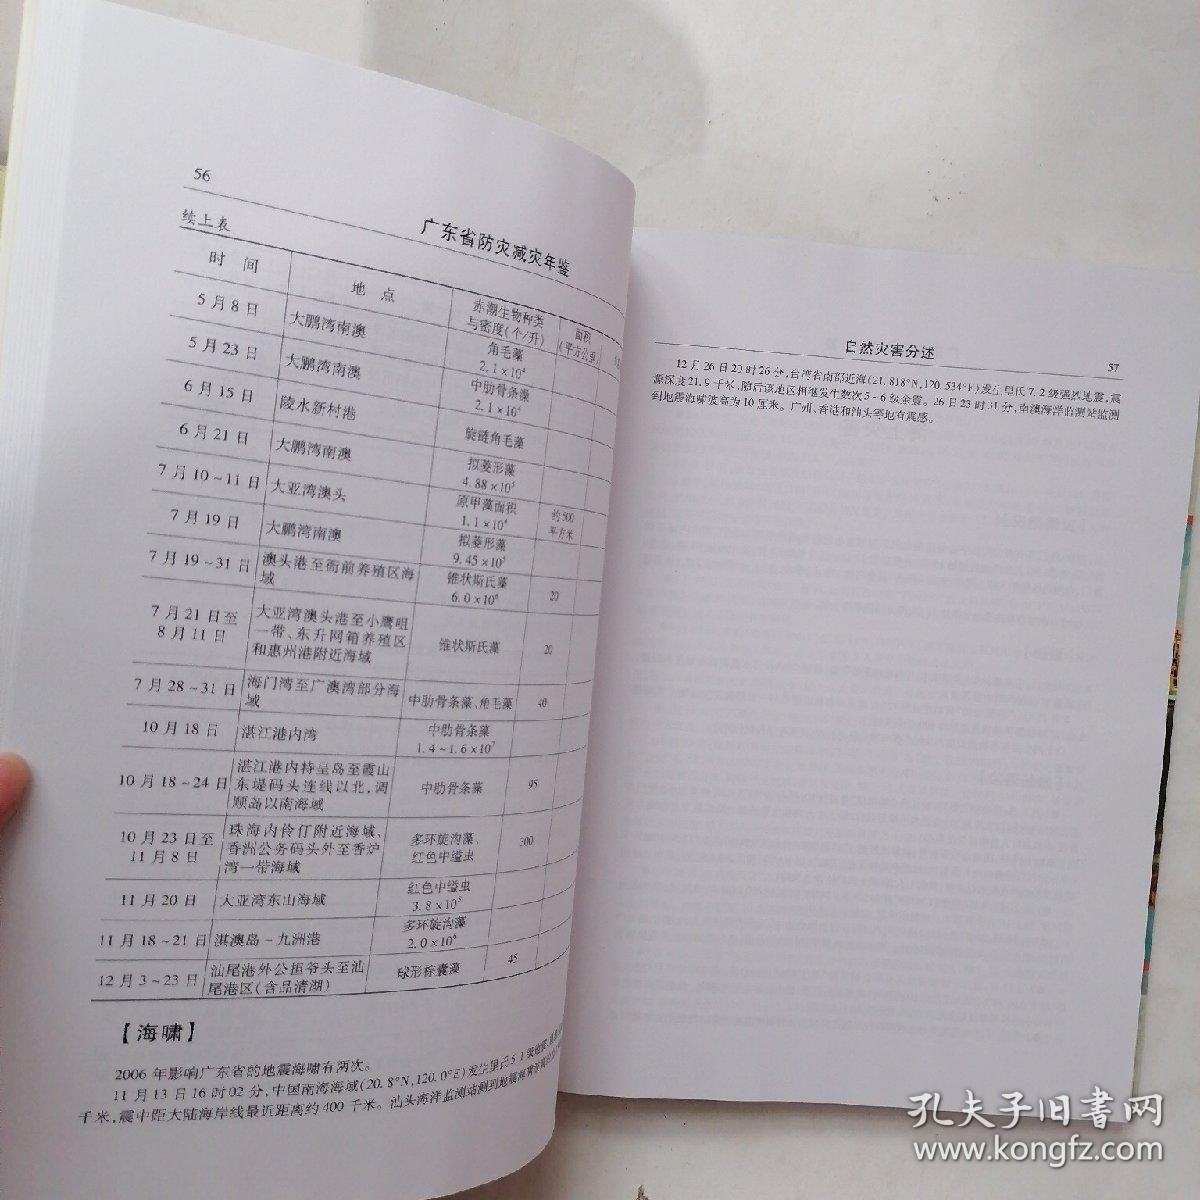 56
广东省防灾减灾年鉴
续上表
时 间 地 点 赤潮生物种类与密度(个/升) 面积(平方公里)
5月8日 大鹏湾南澳 角毛藻 2.1×10⁴
5月23日 大鹏湾南澳 中肋骨条藻 2.1×10⁴
6月15日 陵水新村港 旋链角毛藻
6月21日 大鹏湾南澳 拟菱形藻 4.88×10⁵
7月10~11日 大亚湾澳头 原甲藻面积 1.1×10⁴ 约500平方米
7月19日 大鹏湾南澳 拟菱形藻 9.45×10⁵
7月19~31日 澳头港至衙前养殖区海域 锥状斯氏藻 6.0×10⁶ 20
7月21日至8月11日 大亚湾澳头港至小鹰咀一带、东升网箱养殖区和惠州港附近海域 锥状斯氏藻 20
7月28~31日 海门湾至广澳湾部分海域 中肋骨条藻、角毛藻 40
10月18日 湛江港内湾 中肋骨条藻 1.4~1.6×10⁷
10月18~24日 湛江港内特呈岛至霞山东堤码头连线以北,调顺岛以南海域 中肋骨条藻 95
10月23日至11月8日 珠海内伶仃附近海域、香洲公务码头外至香炉湾一带海域 多环旋沟藻、红色中缢虫 300
11月20日 大亚湾东山海域 红色中缢虫 3.8×10⁵
11月18~21日 淇澳岛-九洲港 多环旋沟藻 2.0×10⁶
12月3~23日 汕尾港外公担爷头至汕尾港区(含品清湖) 球形棕囊藻 45
【海啸】
2006年影响广东省的地震海啸有两次。
11月13日16时02分,中国南海海域(20.8°N,120.0°E)发生里氏5.1级地震,
千米,震中距大陆海岸线最近距离约400千米。汕头海洋监测站测到地震海啸波
自然灾害分述
57
12月26日20时26分,台湾省南部近海(21.818°N,120.534°E)发生里氏7.2级强烈地震,震
源深度21.9千米,随后该地区相继发生数次5~6级余震。26日23时31分,南澳海洋监测站监测
到地震海啸波高为10厘米。广州、香港和汕头等地有震感。
孔夫子旧書网
www.kongfz.com